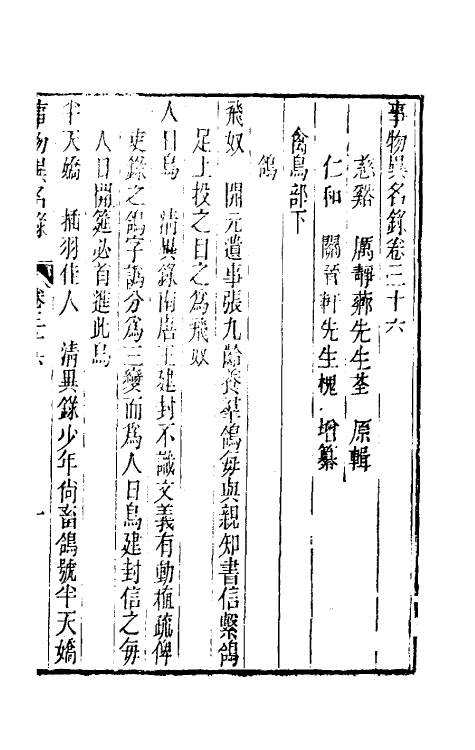 事物異名錄卷三十六
慈谿　厲靜薌先生荃　原輯
仁和　關晉軒先生槐　增纂
禽鳥部下
鴿
飛奴　開元遺事張九齡養羣鴿每與親知書信繫鴿
足上投之目之為飛奴
人日鳥　清異錄南唐王建封不識文義有動植疏俾
吏錄之鴿字譌分為三變而為人日鳥建封信之每
人日開筵必首進此鳥
半天嬌　插羽佳人　清異錄少年尚畜鴿號半天嬌
事物異名錄　卷三十六　一